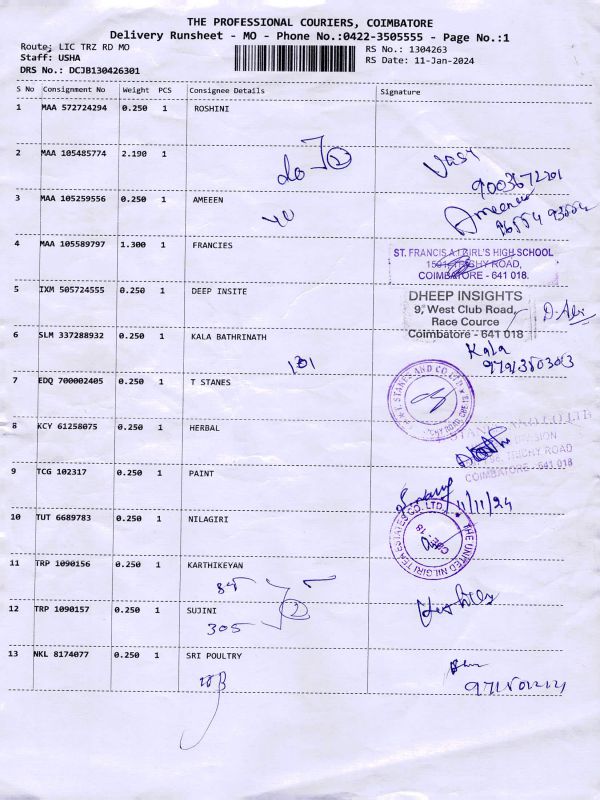 THE PROFESSIONAL COURIERS, COIMBATORE
Delivery Runsheet - MO - Phone No.:0422-3505555 - Page No.:1
Route: LIC TRZ RD MO
RS No.: 1304263
Staff: USHA
RS Date: 11-Jan-2024
DRS No.: DCJB130426301
S No Consignment No Weight PCS Consignee Details Signature
1 MAA 572724294 0.250 1 ROSHINI
2 MAA 105485774 2.190 1
Vasy
9003672201
3 MAA 105259556 0.250 1 AMEEEN
40
Ameenee
4 MAA 105589797 1.300 1 FRANCIES
ST. FRANCIS A.I GIRL'S HIGH SCHOOL
TRICHY ROAD,
COIMBATORE - 641 018.
5 IXM 505724555 0.250 1 DEEP INSITE
DHEEP INSIGHTS
9, West Club Road,
Race Cource
Coimbatore - 641 018
6 SLM 337288932 0.250 1 KALA BATHRINATH
131
Kala
7 EDQ 700002405 0.250 1 T STANES
8 KCY 61258075 0.250 1 HERBAL
TRICHY ROAD
COIMBATORE - 641 018
9 TCG 102317 0.250 1 PAINT
11/11/24
10 TUT 6689783 0.250 1 NILAGIRI
THE UNITED NILGIRI TEA ESTATES CO. LTD.
11 TRP 1090156 0.250 1 KARTHIKEYAN
12 TRP 1090157 0.250 1 SUJINI
305
2
13 NKL 8174077 0.250 1 SRI POULTRY